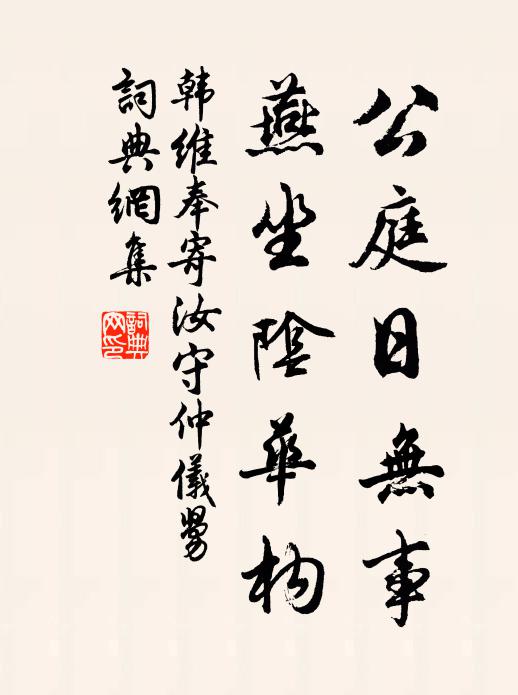 公庭日無事
燕坐陰華构
韩維奉寄汝守仲儀勞
詞典網集
詞典网印